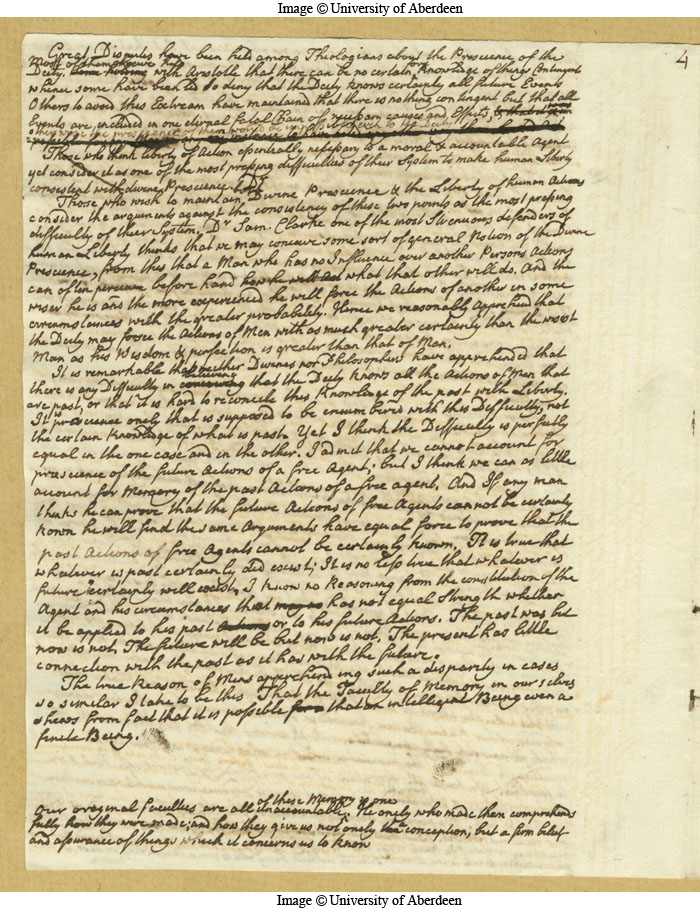 Image © University of Aberdeen
4
Great Disputes have been held among Theologians about the Prescience of the
most of them have held
Deity. Some holding with Aristotle that there can be no certain Knowledge of things Contingent
whence some have been led to deny that the Deity knows certainly all future Events
Others to avoid this Extream have maintained that there is nothing contingent but that all
Events are included in one eternal fatal Chain of necessary causes and Effects,
Those who think Liberty of Action essentially necessary to a moral & accountable Agent
yet consider it as one of the most pressing difficulties of their System to make human Liberty
consistent with divine Prescience.
Those who wish to maintain Divine Prescience & the Liberty of human Actions
consider the arguments against the consistency of these two points as the most pressing
difficulty of their System. Dr Sam Clarke one of the most Strenuous defenders of
human Liberty thinks that we may conceive some sort of general Notion of the Divine
Prescience, from this that a Man who has no Influence over another Persons Actions
can often perceive before hand how he will act what that other will do. And the
wiser he is and the more experienced he will forsee the Actions of another in some
circumstances with the greater probability. Hence we reasonably apprehend that
the Deity may forsee the Actions of Men with as much greater certainty than the wisest
Man as his Wisdom & perfection is greater than that of Man.
It is remarkable that neither Divines nor Philosophers have apprehended that
believing
there is any Difficulty in conceiving that the Deity knows all the Actions of Men that
are past, or that it is hard to reconcile this Knowledge of the past with Liberty.
It is prescience onely that is supposed to be encumbered with this Difficulty, not
the certain Knowledge of what is past. Yet I think the Difficulty is perfectly
equal in the one case and in the other. I admit that we cannot account for
prescience of the future Actions of a free Agent; but I think we can as little
account for Memory of the past Actions of a free agent. And If any man
thinks he can prove that the future Actions of free Agents cannot be certainly
known he will find the same Arguments have equal force to prove that the
past Actions of free Agents cannot be certainly known. It is true that
whatever is past certainly did exist; It is no less true that whatever is
future certainly will exist, I know no Reasoning from the constitution of the
Agent and his circumstances that may no has not equal Strength whether
it be applied to his past Actions or to his future Actions. The past was but
now is not. The future will be but now is not. The present has as little
connection with the past as it has with the future.
The true Reason of Mens apprehending such a disparity in cases
so similar I take to be this That the Faculty of Memory in our selves
shews from fact that it is possible that an intelligent Being even a
finite Being.
of these Memory is one
Our original faculties are all unaccountable. He onely who made them comprehends
fully how they were made; and how they give us not onely the conception, but a firm belief
and assurance of things which it concerns us to know
Image © University of Aberdeen